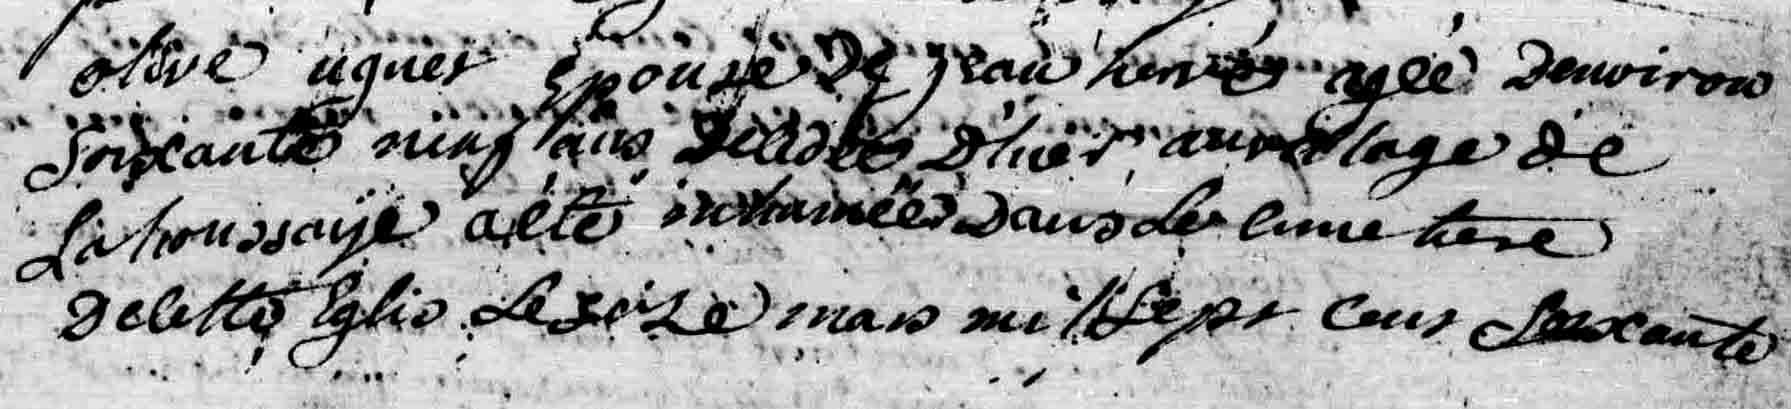 olive uguet Epouse De jean hervés agéé Denviron
Soixante neuf ans Decedee D'hier au village de
La houssaÿe a été inhumée Dans Le Cimetiere
De Cette Eglis Le seize mars mil Sept Cent Soixante